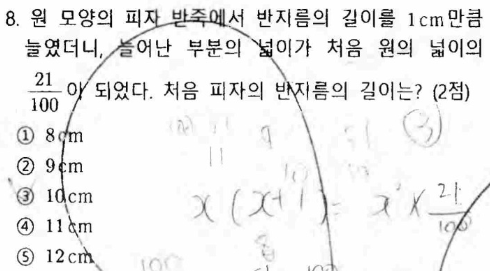 8. 원 모양의 피자 반죽에서 반지름의 길이를 1cm만큼
늘였더니, 늘어난 부분의 넓이가 처음 원의 넓이의
21/100 이 되었다. 처음 피자의 반지름의 길이는? (2점)
① 8cm
② 9cm
③ 10cm
④ 11cm
⑤ 12cm
③
x(x+1)= x² × 21/100